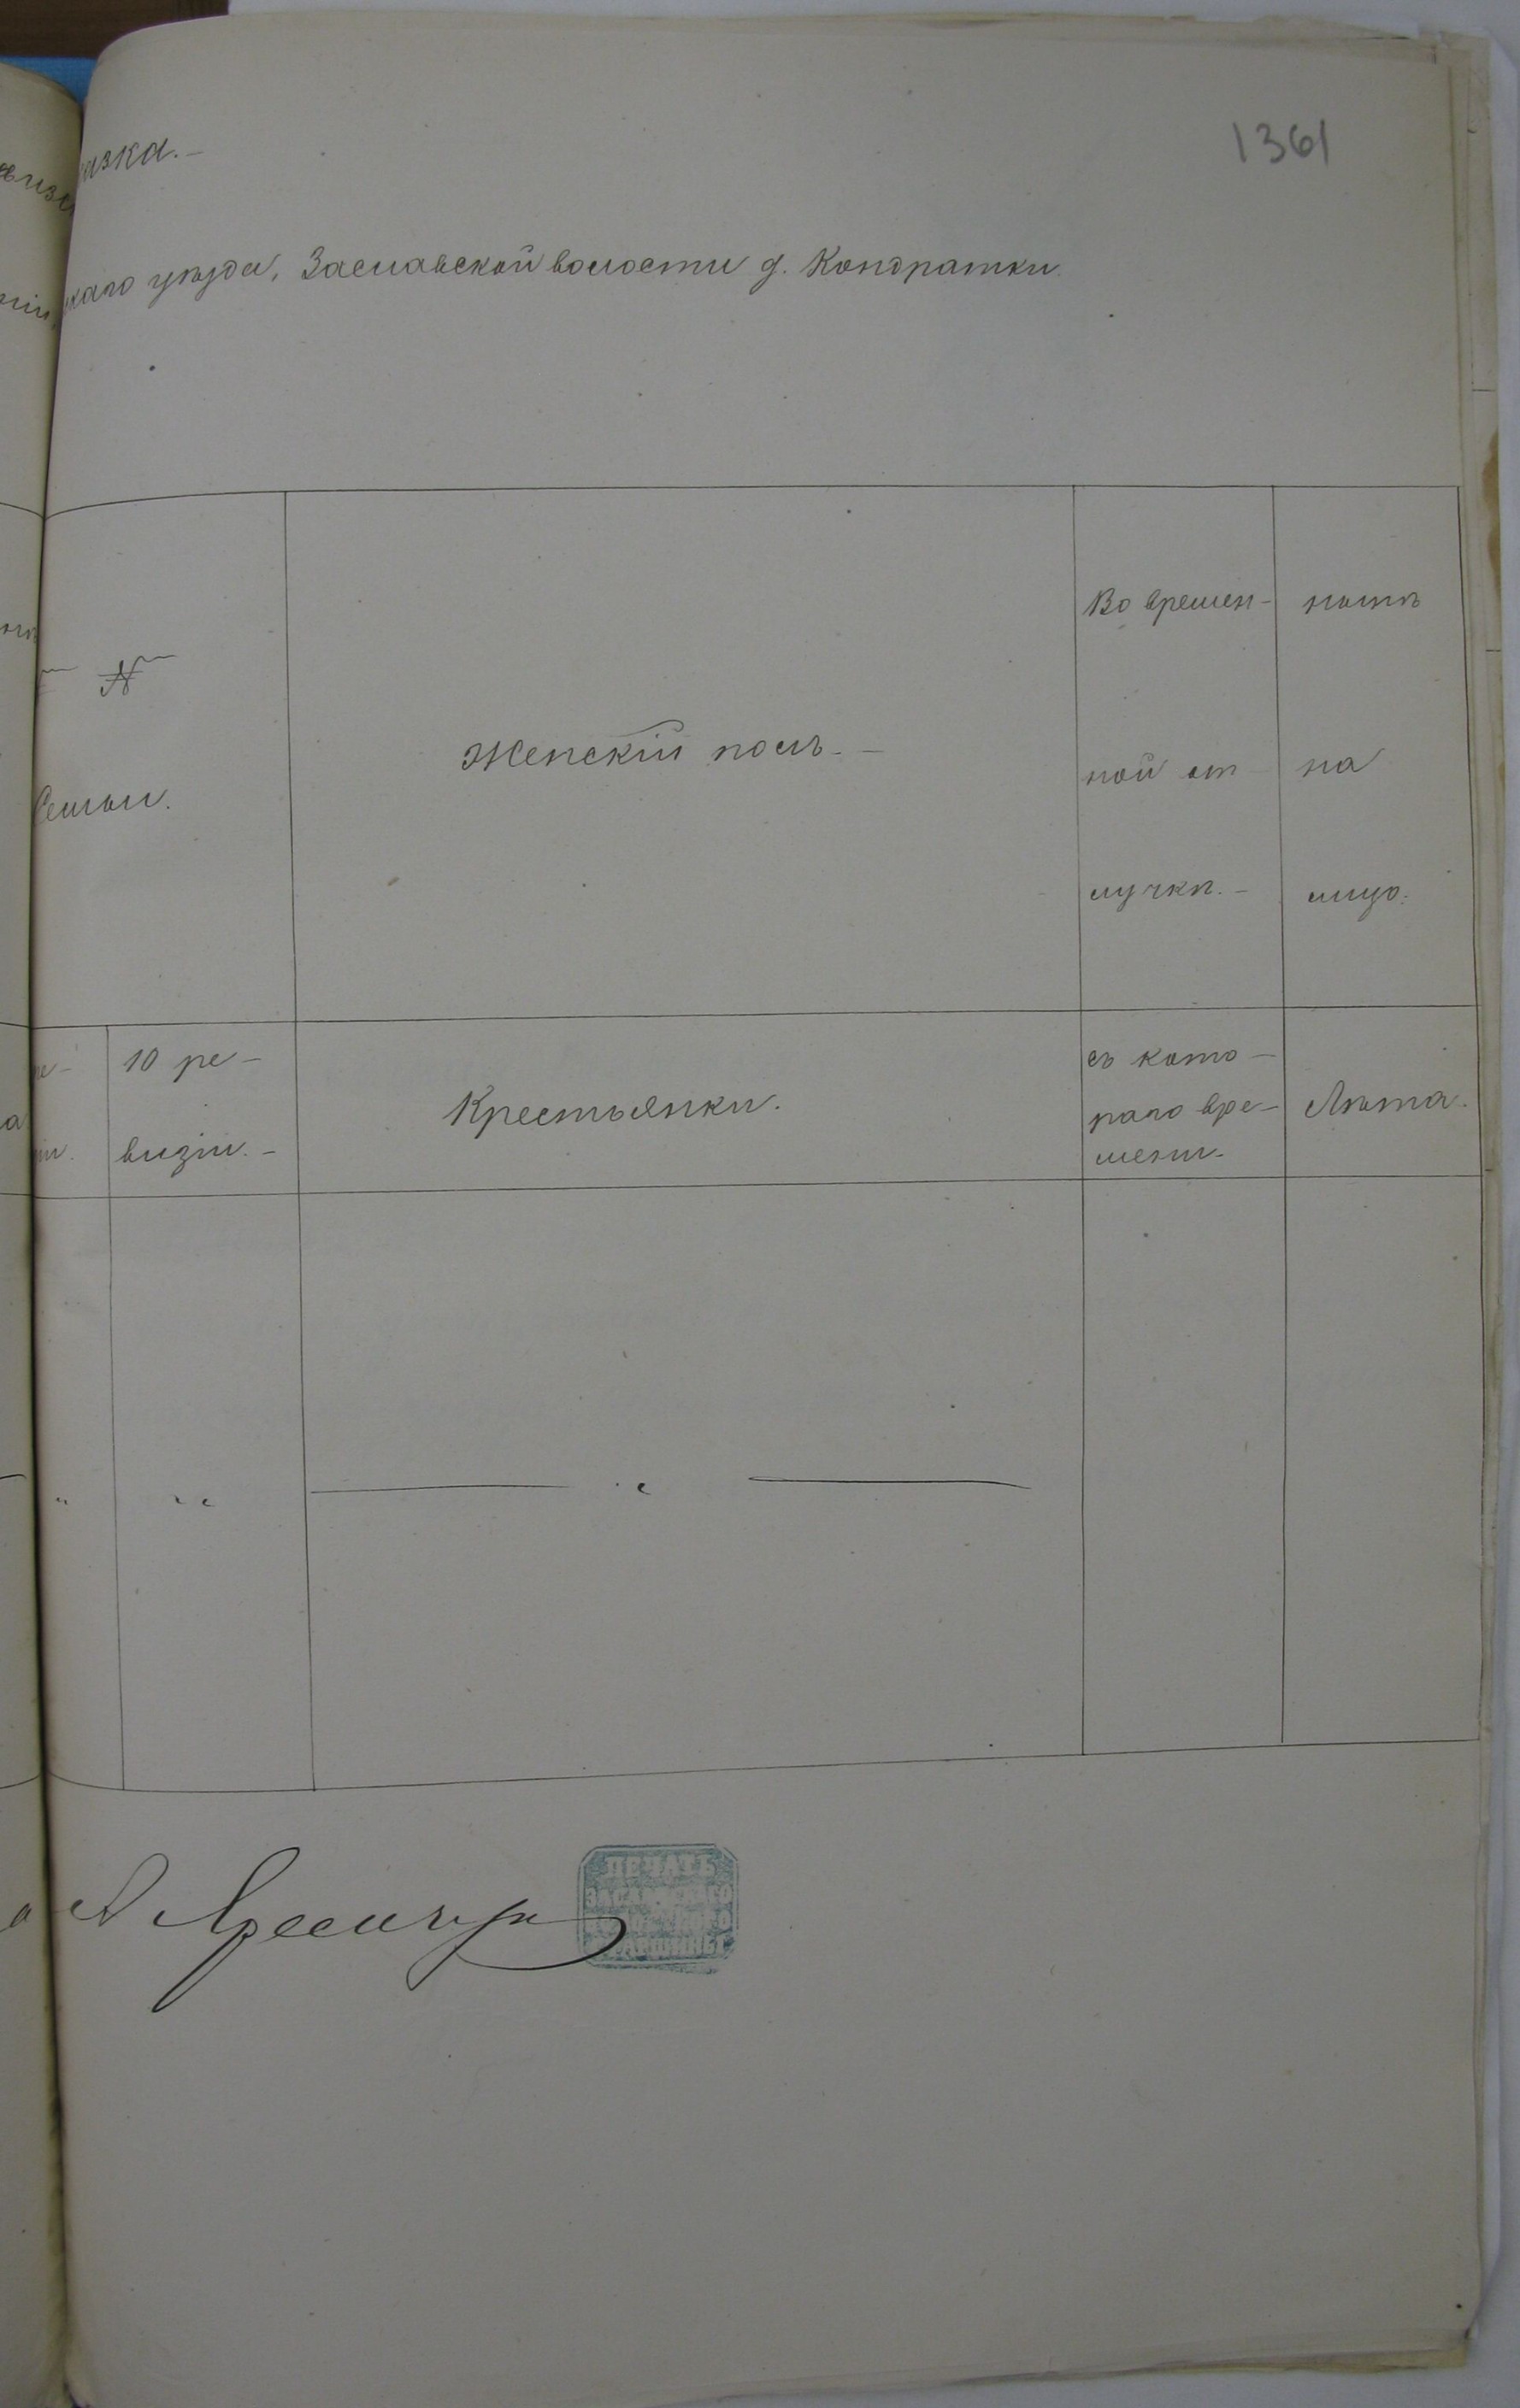 1361
азка.-
скаго уѣзда, Заславской волости д. Кондратки.
№
Семьи.
Женскій полъ.-
Во времен-
ной от
лучкѣ.-
нынѣ
на
лицо.
10 ре-
визіи.-
Крестьянки.
съ кото-
раго вре-
мени.
Лѣта.
" " — " —
ПЕЧАТЬ
ЗАСЛАВСКАГО
ВОЛОСТНОГО
СТАРШИНЫ